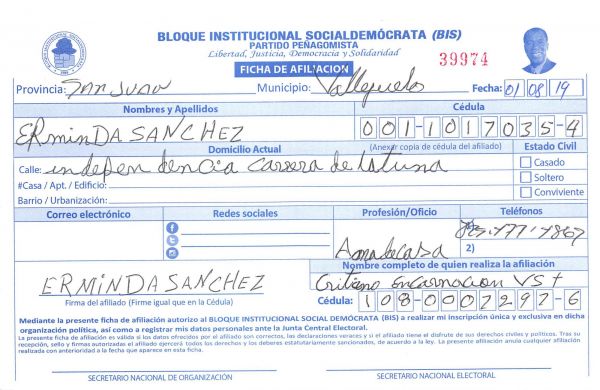 BLOQUE INSTITUCIONAL SOCIALDEMÓCRATA (BIS)
PARTIDO PEÑAGOMISTA
Libertad, Justicia, Democracia y Solidaridad
39974
FICHA DE AFILIACION
Provincia: San Juan Municipio: Vallejuelo Fecha: 01/08/19
Nombres y Apellidos Cédula
ERminDA SANCHEZ 001-1017035-4
Domicilio Actual (Anexar copia de cédula del afiliado) Estado Civil
Calle: independencia Carrera de
#Casa / Apt. / Edificio:
Barrio / Urbanización:
Casado
Soltero
Conviviente
Correo electrónico Redes sociales Profesión/Oficio Teléfonos
Ama de casa
2)
Nombre completo de quien realiza la afiliación
ERMINDA SANCHEZ
Encarnacion
Firma del afiliado (Firme igual que en la Cédula)
Cédula: 108-0007297-6
Mediante la presente ficha de afiliación autorizo al BLOQUE INSTITUCIONAL SOCIAL DEMÓCRATA (BIS) a realizar mi inscripción única y exclusiva en dicha
organización política, así como a registrar mis datos personales ante la Junta Central Electoral.
La presente ficha de afiliación es válida si los datos ofrecidos por el afiliado son correctos, las declaraciones veraces y si el afiliado tiene el disfrute de sus derechos civiles y políticos. Tras su
recepción, sello y firmas autorizadas el afiliado ejercerá todos los derechos y los deberes estatutariamente sancionados, de acuerdo a la ley. La presente afiliación anula cualquier afiliación
realizada con anterioridad a la fecha que aparece en esta ficha.
SECRETARIO NACIONAL DE ORGANIZACIÓN SECRETARIO NACIONAL ELECTORAL